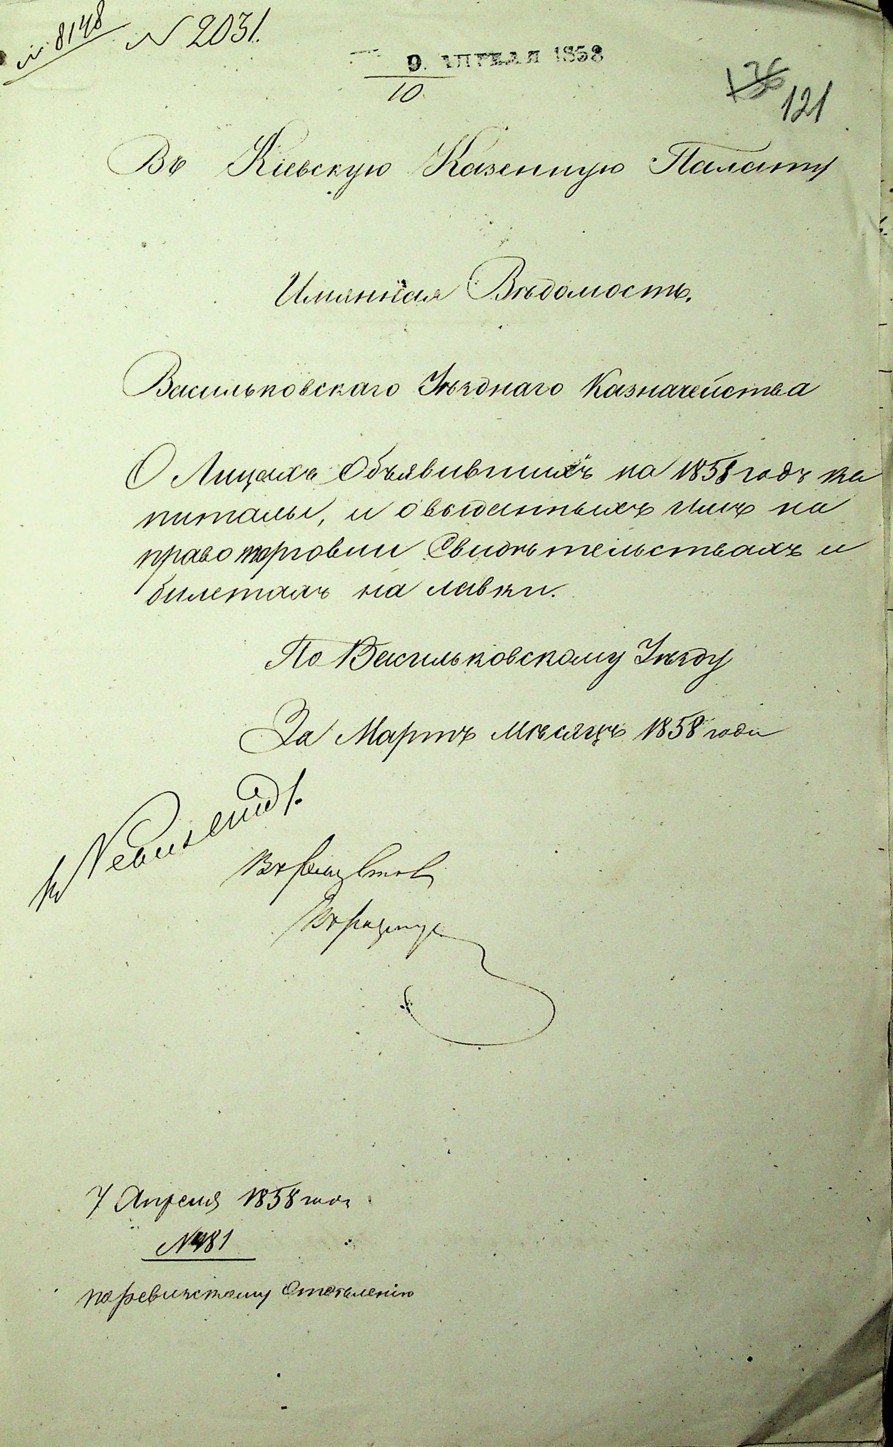 № 8148
№ 2031.
9. АПРЕЛЯ 1858
10
136
121
Въ Кіевскую Казенную Палату
Имянная Вѣдомость.
Васильковскаго Уѣзднаго Казначейства
О Лицахъ Объявившихъ на 1858 годъ ка
питалы, и о выданныхъ имъ на
право торговли Свидѣтельствахъ и
билетахъ на лавки.
По Васильковскому Уѣзду
За Мартъ Мѣсяцъ 1858 года
7 Апреля 1858 года
№ 481
по ревизскому Отдѣленію